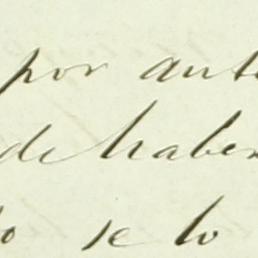 por ante
de haber
lo se lo